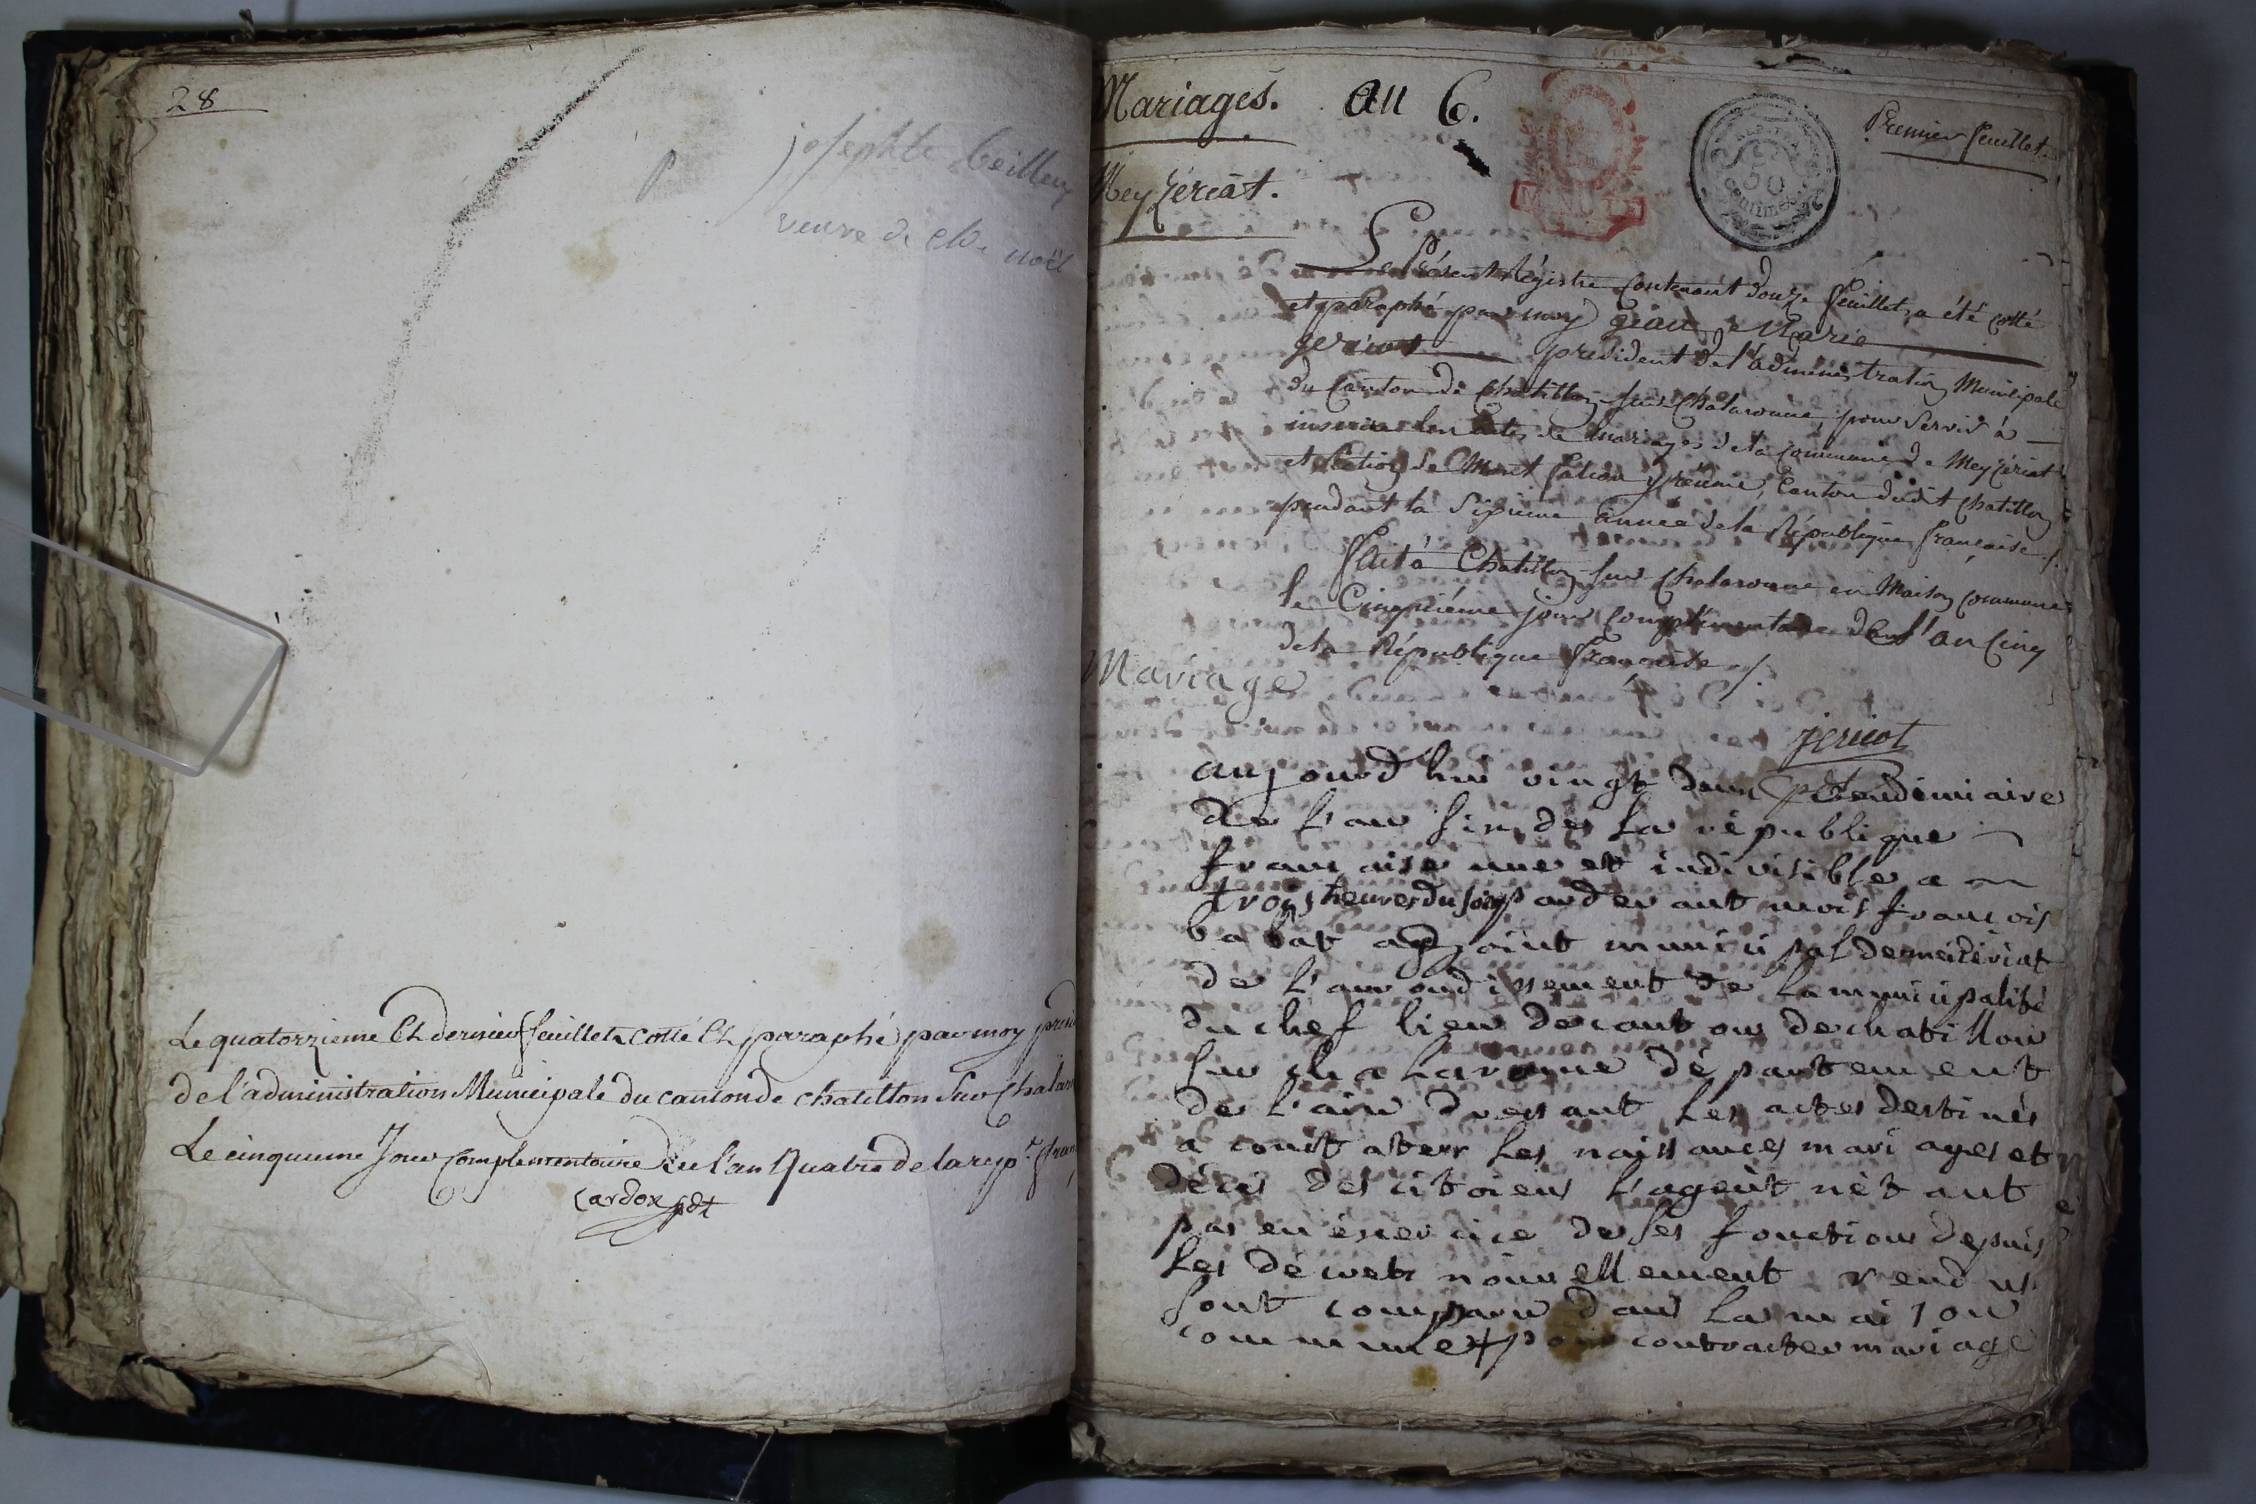 28
josephte
veuve de noël
Le quatorzieme Et dernier feuillet cotté Et paraphé par moy
de l'administration Municipale du canton de chatillon Sur
Le cinquieme Jour Complementaire de l'an Quatre de la rep.
cardon pdt
Mariages. an 6.
Premier feuillet.
50
centimes
Meyzériat.
Le Présent Régistre contenant douze feuillets a été cotté
et paraphé par moy jean Marie
jericot président de l'administration Municipale
du Canton de Chatillon sur Chalaronne, pour servir à
inscrire les actes de mariages de la commune de Meyzériat
et section de Mont y réunie, Canton dudit Chatillon
pendant la sixieme année de la République française ./.
fait à Chatillon sur Chalaronne en Maison commune
le Cinquiéme jour complémentaire de l'an Cinq
de la République française ./.
Mariage
jericot
pdt
aujourd'hui vingt deux vendemiaire
de l'an six de la république
francaise une et indivisible a
trois heures du soir pardevant mois francois
babat adjoint municipal de meiseriat
de l'arrondissement de la municipalité
du chef lieu de canton de chatillon
sur chalaronne département
de l'ain dressant les actes destinés
a constater les naissances mariages et
décès des citoiens l'agent nètant
pas en éxercice de ses fonctions depuis
les décrets nouvellement rendus
sont comparu dans la maison
commune pour contracter mariage